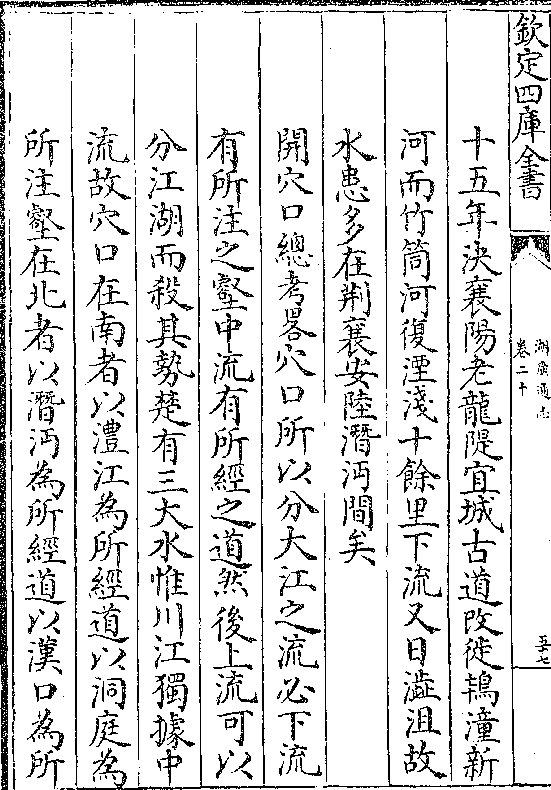 欽定四庫全書
湖廣通志
卷二十
五七
十五年決襄陽老龍隄宜城古道改徙鴇潼新
河而竹筒河復湮淺十餘里下流又日澁沮故
水患多在荆襄安陸潛沔間矣
開穴口總考畧穴口所以分大江之流必下流
有所注之壑中流有所經之道然後上流可以
分江湖而殺其勢楚有三大水惟川江獨據中
流故穴口在南者以澧江為所經道以洞庭為
所注壑在北者以潛沔為所經道以漢口為所